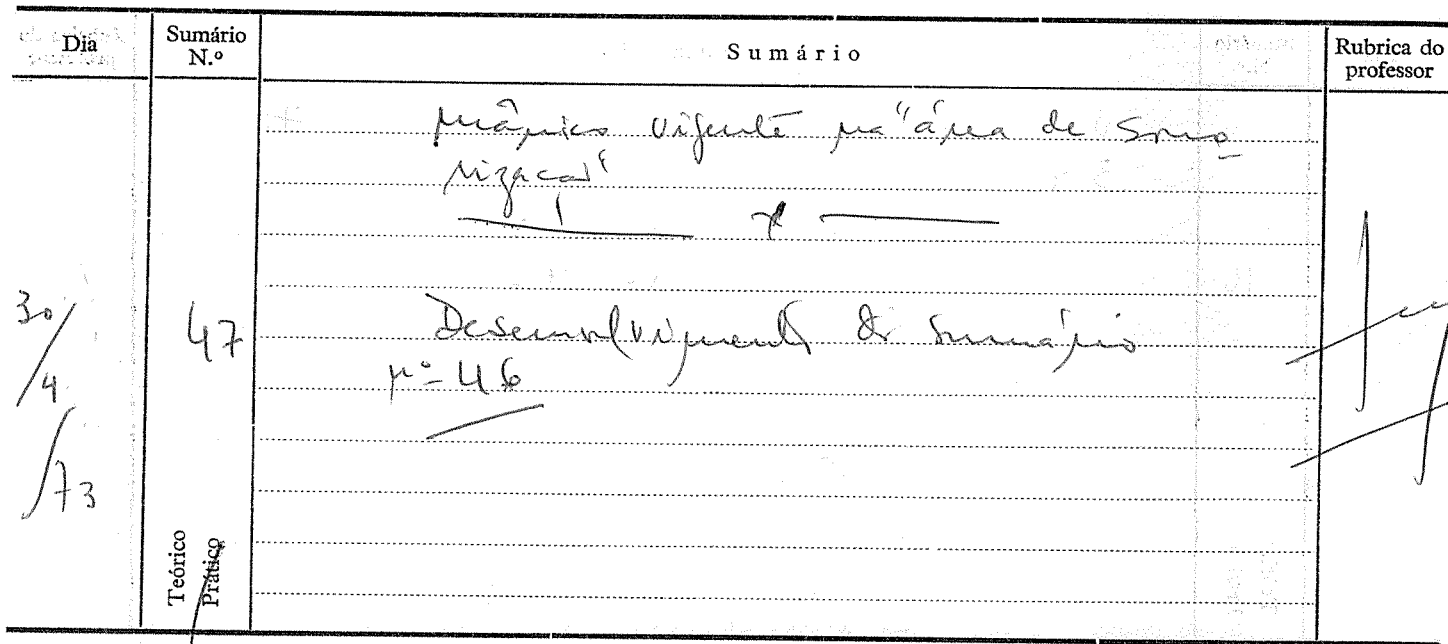 Dia
Sumário N.º
Sumário
Rubrica do professor
vigente na "área de sono
rização"
30/4/73
47
Desenvolvimento do sumário
nº 46
Teórico
Prático